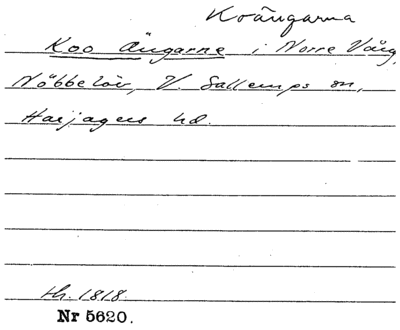 Koängarna
Koo Ängarne i Norre Vång,
Nöbbelöv, V. Sallerups sn,
Harjagers hd.
th. 1818.
Nr 5620.